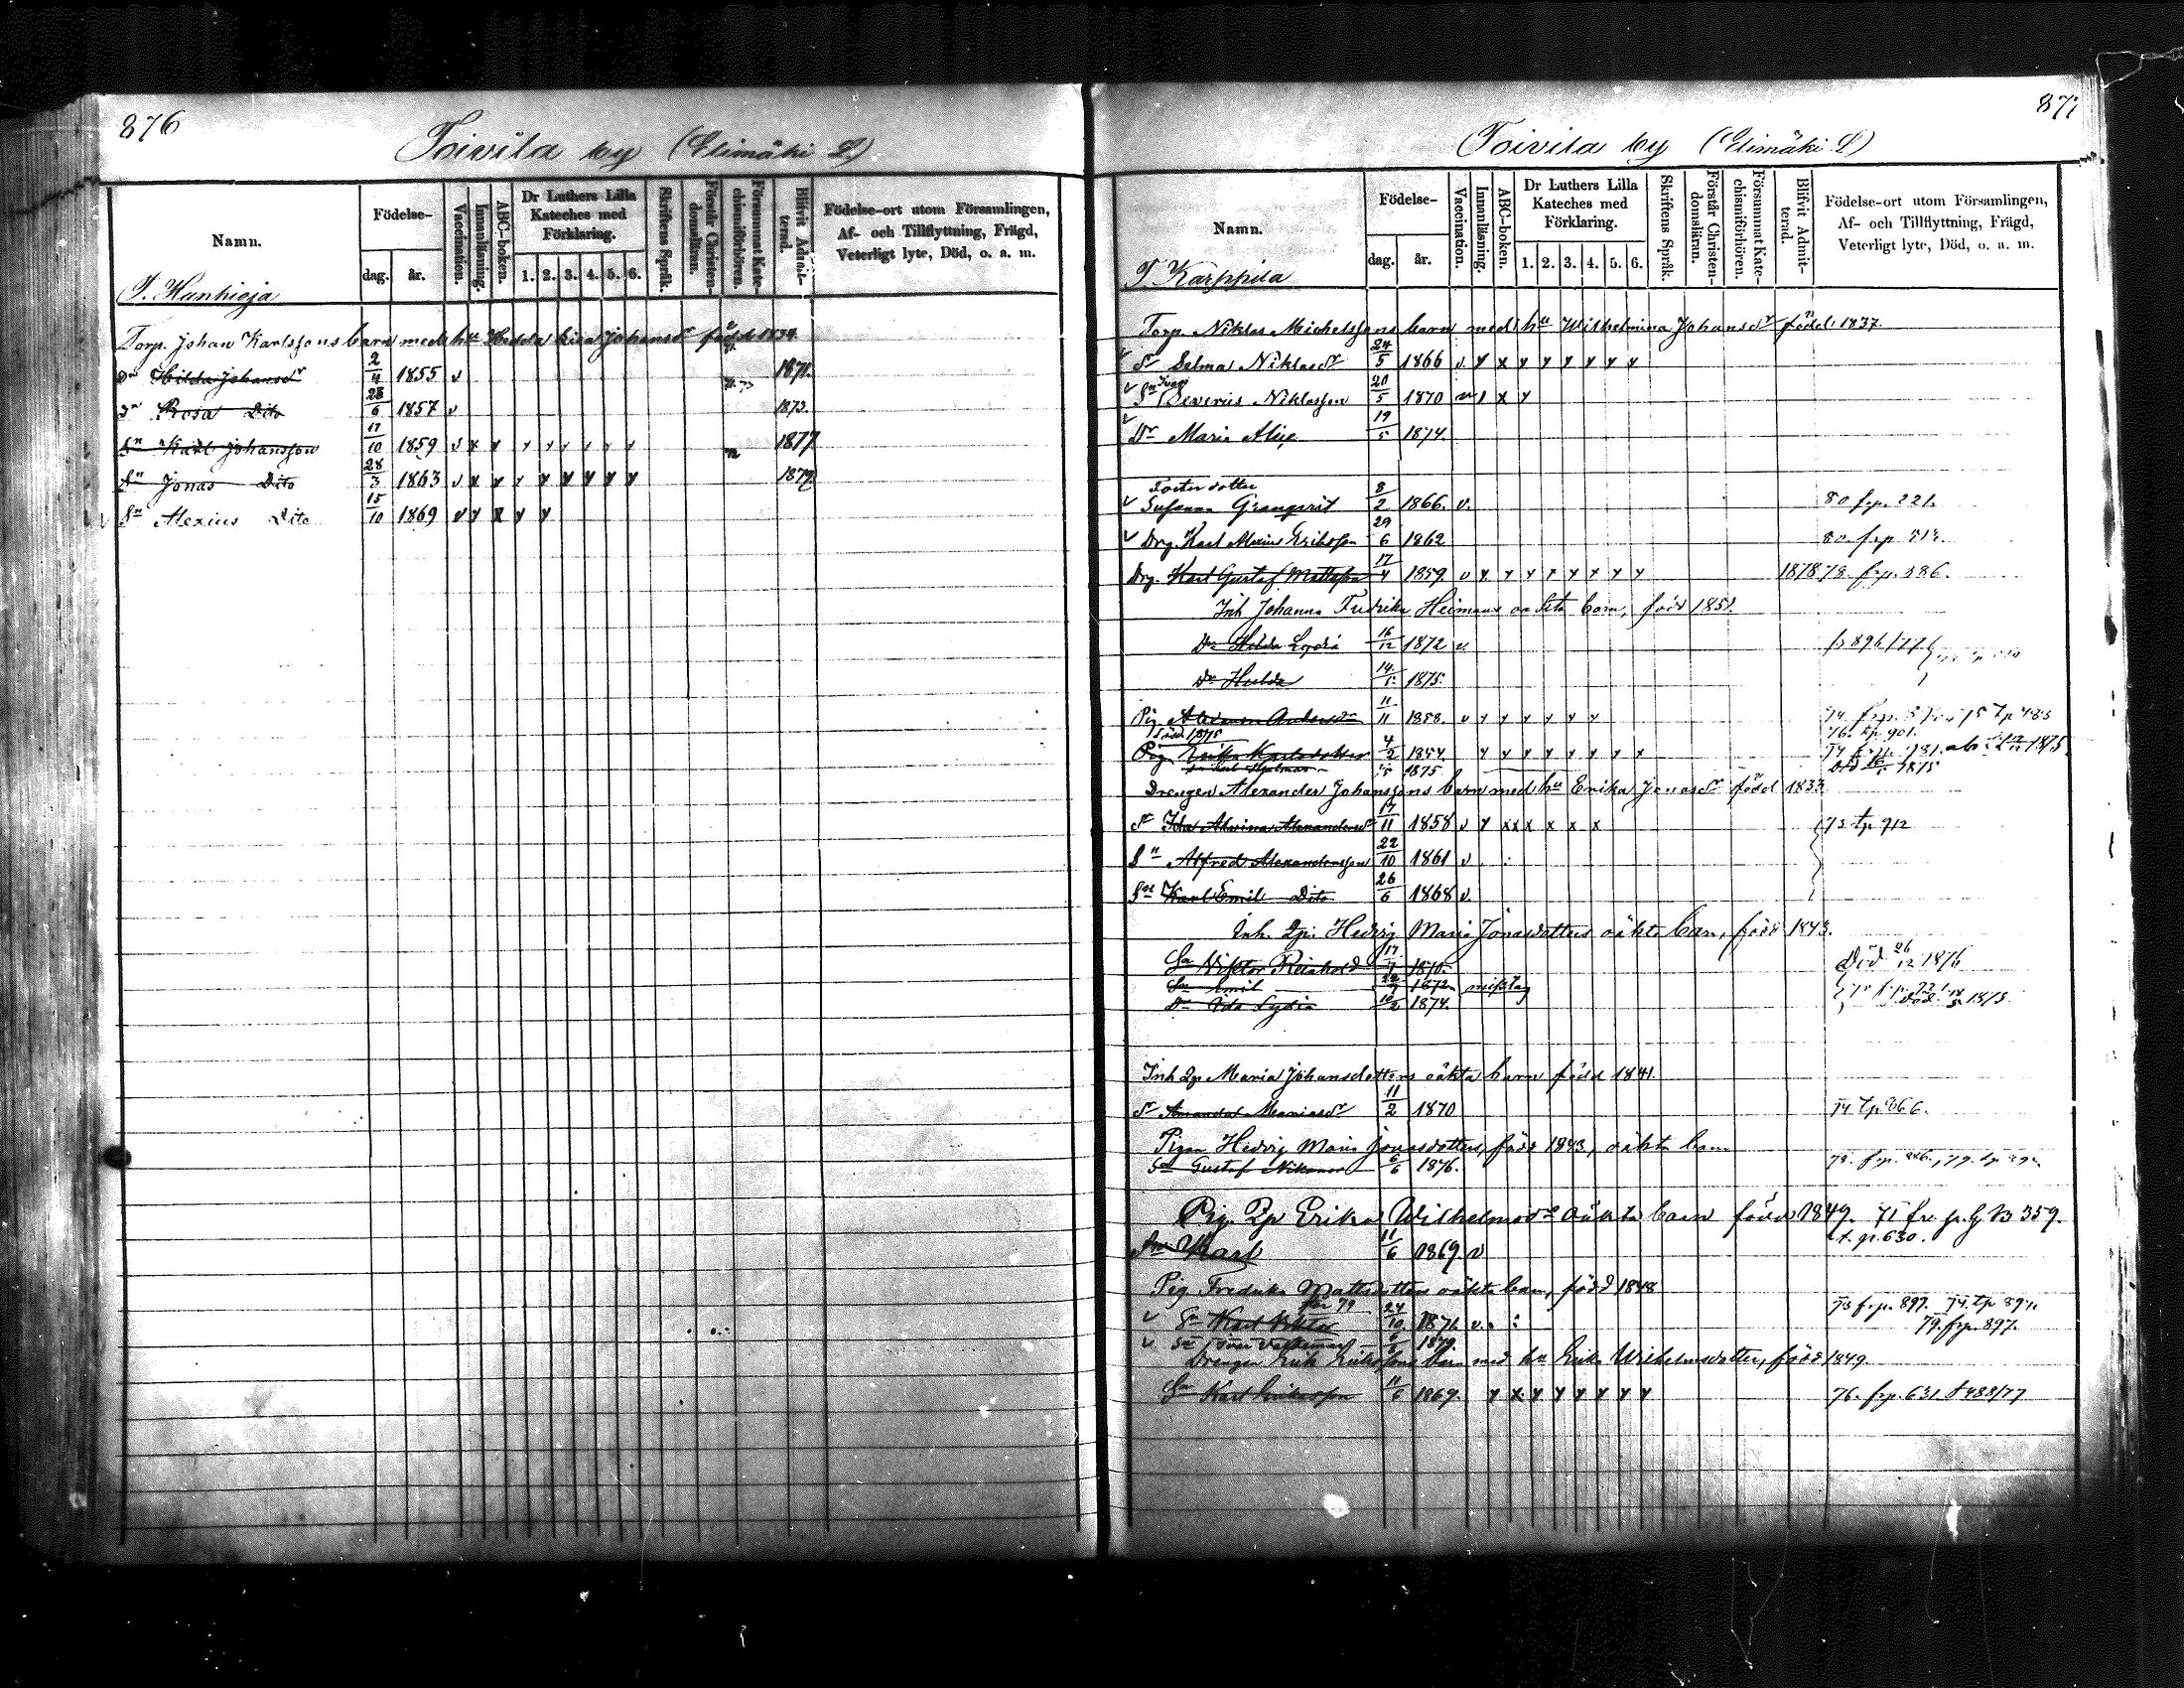 876
Toivila by (Elimäki S.)
Namn.
Födelse-
dag.
år.
Vaccination.
Innanläsning.
ABC-boken.
Dr Luthers Lilla
Kateches med
Förklaring.
1. 2. 3. 4. 5. 6.
Skriftens Språk.
Förstår Christen-
domsläran.
Försummat Kate-
chismiförhören.
Blifvit Admit-
terad.
Födelse-ort utom Församlingen,
Af- och Tillflyttning, Frägd,
Veterligt lyte, Död, o. a. m.
T. Hanhioja
Torp. Johan Karlssons barn med hu Hedda Johansdr född 1834
Dr Hilda Johansdr 2/4 1855 v 1871.
Dr Rosa Dito 28/6 1857 v 1873.
Sn Karl Johansson 17/10 1859 v x x y y y y y y 1877
Sn Jonas Dito 28/3 1863 v x x y y y y y y 1879
Sn Alexius Dito 15/10 1869 v y x y y
877
Toivila by (Elimäki S)
Namn.
Födelse-
dag.
år.
Vaccination.
Innanläsning.
ABC-boken.
Dr Luthers Lilla
Kateches med
Förklaring.
1. 2. 3. 4. 5. 6.
Skriftens Språk.
Förstår Christen-
domsläran.
Försummat Kate-
chismiförhören.
Blifvit Admit-
terad.
Födelse-ort utom Församlingen,
Af- och Tillflyttning, Frägd,
Veterligt lyte, Död, o. a. m.
T. Karppila
Torp. Niklas Michelssons barn med hu Wilhelmina Johansdr född 1837.
Dr Selma Niklasdr 24/5 1866 v. y x y y y y y y
Sn Severus Niklasson 20/5 1870 x y
Dr Maria 19/5 1874.
Foster dotter
Susanna Granqvist 8/2 1866. v. 80 frp. 221.
Drg. Karl Alexius Eriksson 29/6 1862 80 frp
Drg. Karl Gustaf Mattsson 17/4 1859. v y. y y y y y y y 1878 78 frp. 386.
Inh Johanna Fredrika Heimans oäkta barn, född 1851.
Dr Hilda Lydia 16/12 1872 v. p 896/77
Dr Hulda 14/5 1875.
Pig. Andersdr 11/11 1858. v y y y y y y 76. tp. 901.
Pig. Erika Karlsdotter 4/2 1854. y y y y y y y y
Karl Hjalmar 1875. död 16/5 1875
Drengen Alexander Johanssons barn med hu Erika Jonasdr född 1833
Dr Ida Alexandersdr 17/11 1858 v y x x x x x x 73 tp 912
Sn Alfred Alexandersson 22/10 1861 v
Sn Karl Emil Dito 26/6 1868 v.
Inh. Qp. Hedvig Maria Jonasdotters oäkta barn, född 1843.
Sn Viktor Reinhold 17/7 1870. Död 26/12 1876
Sn Emil 1872. misstag
Dr Ida Lydia 1874. död 1875.
Inh Qp Maria Johansdotters oäkta barn född 1841.
Dr Amanda Mariasdr 11/2 1870 74. tp 866.
Pigan Hedvig Maria Jonasdotters, född 1843, oäkta barn
Sn Gustaf Nikanor 6/6 1876.
Pig. Qp Erika Wilhelmsdrs oäkta barn född 1849. 71 fr. p. 359.
t. p. 630.
Sn Karl 11/6 1869 v
Pig Fredrika Mattsdotters oäkta barn, född 1848
Sn Karl Viktor 24/10 1871. v. 73 frp. 897. 74. tp 894.
79. frp. 897.
Sn Valdemar 1879.
Drengen Erik Erikssons barn med hu Erika Wilhelmsdotter, född 1849.
Sn Karl Eriksson 11/6 1869. y x y y y y y y 76. frp. 631. t 488/77